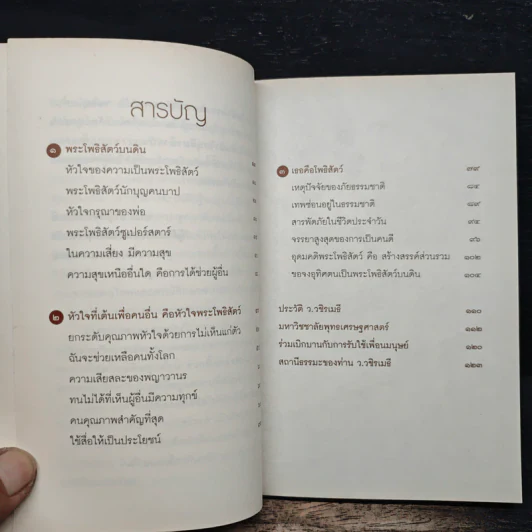 สารบัญ
๑ พระโพธิสัตว์บนดิน
หัวใจของความเป็นพระโพธิสัตว์
พระโพธิสัตว์นักบุญคนบาป
หัวใจกรุณาของพ่อ
พระโพธิสัตว์ซูเปอร์สตาร์
ในความเสี่ยง มีความสุข
ความสุขเหนืออื่นใด คือการได้ช่วยผู้อื่น
๒ หัวใจที่เต้นเพื่อคนอื่น คือหัวใจพระโพธิสัตว์
ยกระดับคุณภาพหัวใจด้วยการไม่เห็นแก่ตัว
ฉันจะช่วยเหลือคนทั้งโลก
ความเสียสละของพญาวานร
ทนไม่ได้ที่เห็นผู้อื่นมีความทุกข์
คนคุณภาพสำคัญที่สุด
ใช้สื่อให้เป็นประโยชน์
๓ เธอคือโพธิสัตว์ ๗๙
เหตุปัจจัยของภัยธรรมชาติ ๘๔
เทพซ่อนอยู่ในธรรมชาติ ๘๙
สารพัดภัยในชีวิตประจำวัน ๙๔
จรรยาสูงสุดของการเป็นคนดี ๙๖
อุดมคติพระโพธิสัตว์ คือ สร้างสรรค์ส่วนรวม ๑๐๒
ขอจงอุทิศตนเป็นพระโพธิสัตว์บนดิน ๑๐๔
ประวัติ ว.วชิรเมธี ๑๑๐
มหาวิชชาลัยพุทธเศรษฐศาสตร์ ๑๑๒
ร่วมเบิกบานกับการรับใช้เพื่อนมนุษย์ ๑๒๐
สถานีธรรมะของท่าน ว.วชิรเมธี ๑๒๓